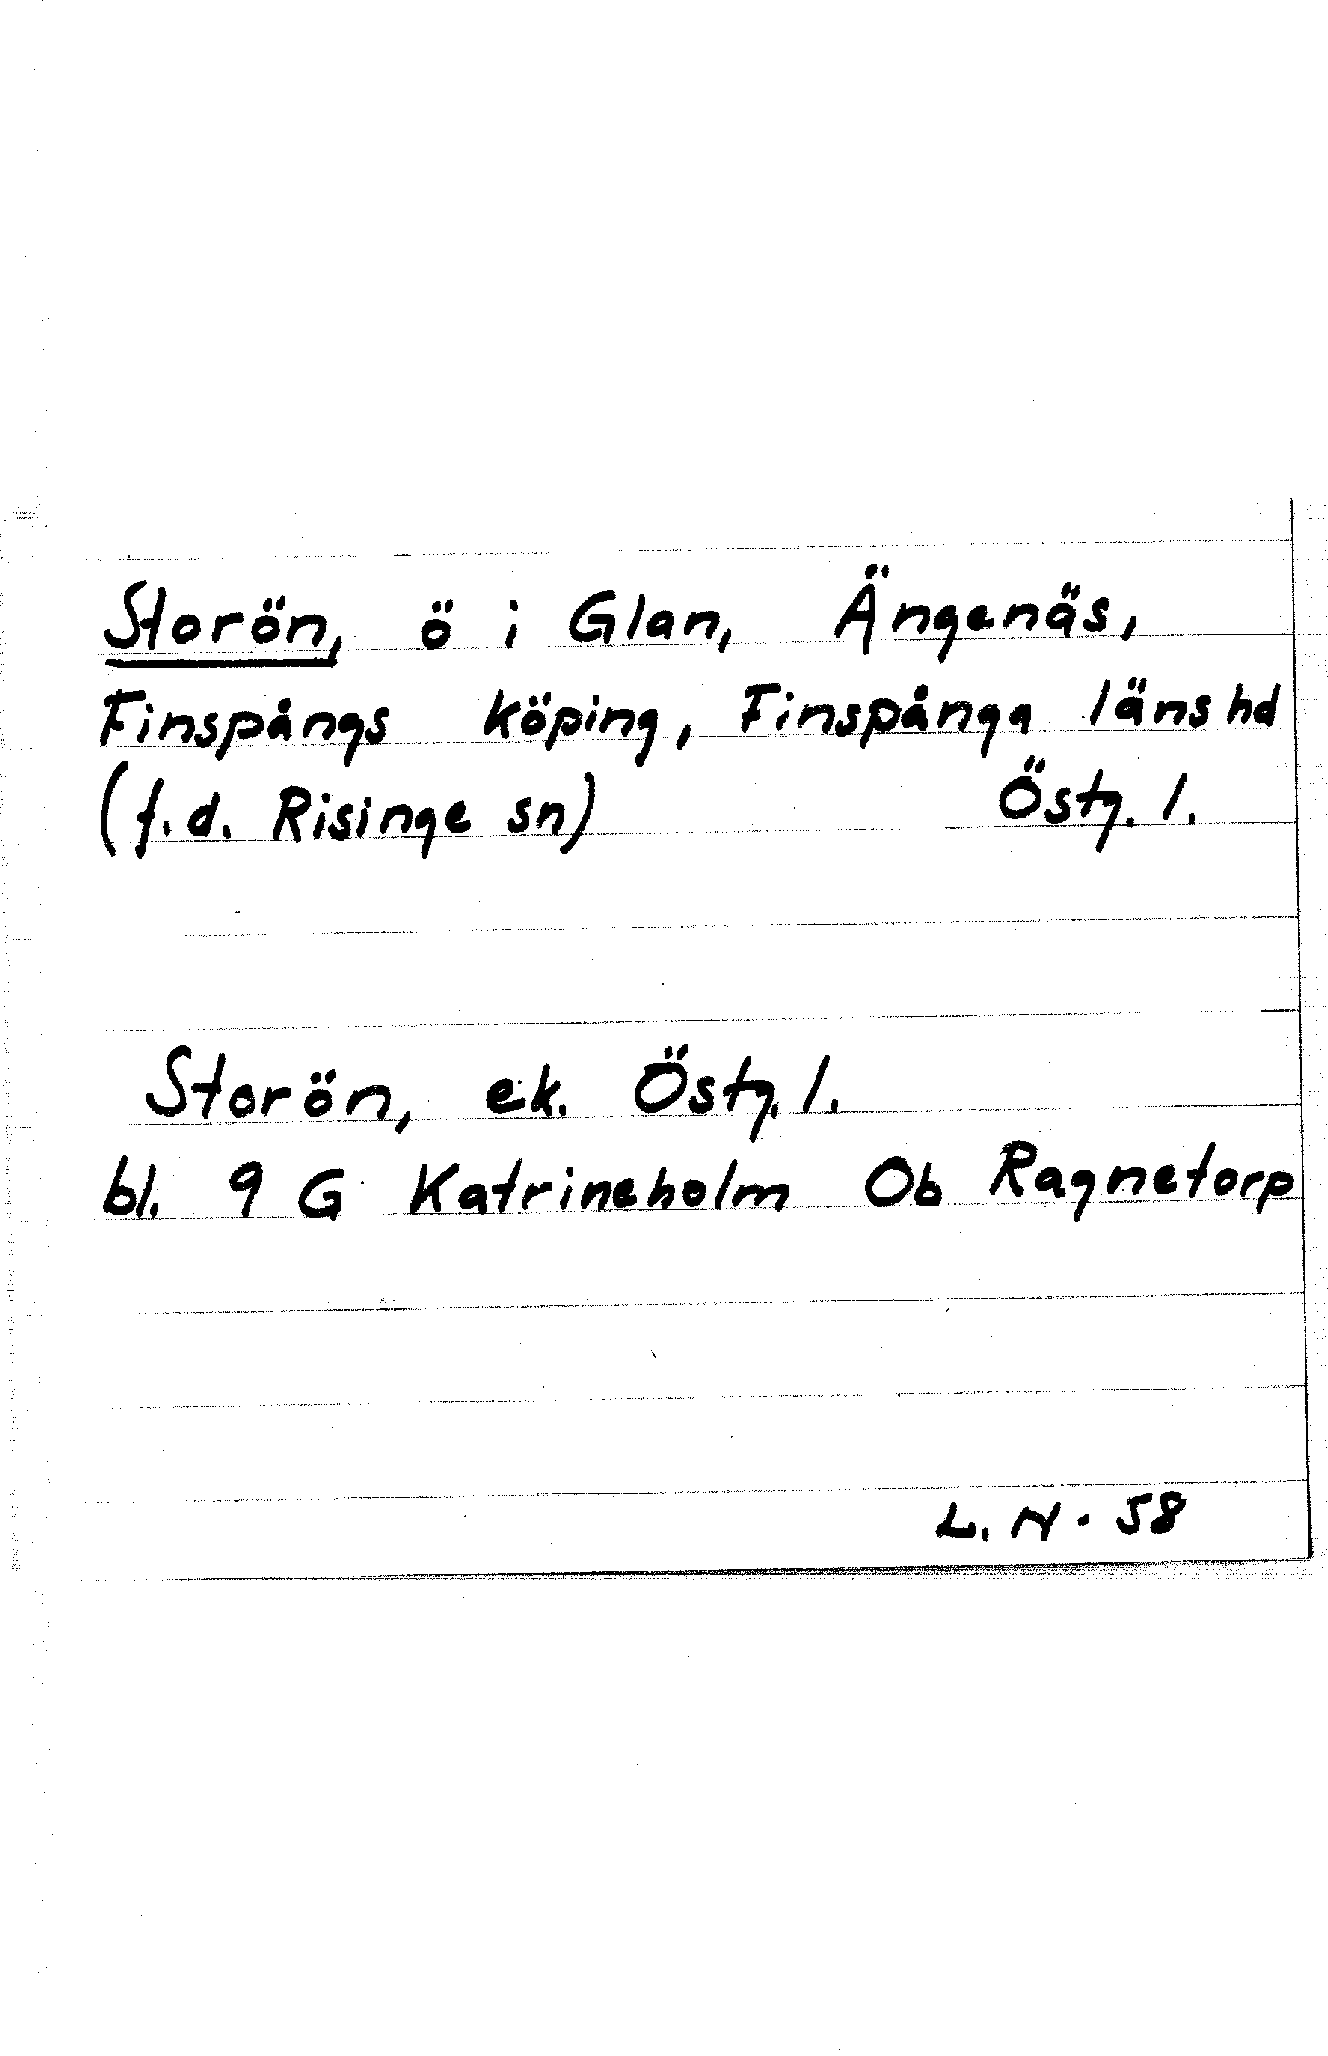 Storön, ö i Glan, Ängenäs,
Finspångs köping, Finspånga läns hd
(f.d. Risinge sn) Östg. l.
Storön, ek. Östg. l.
bl. 9 G Katrineholm Ob Ragnetorp
L. N. 58